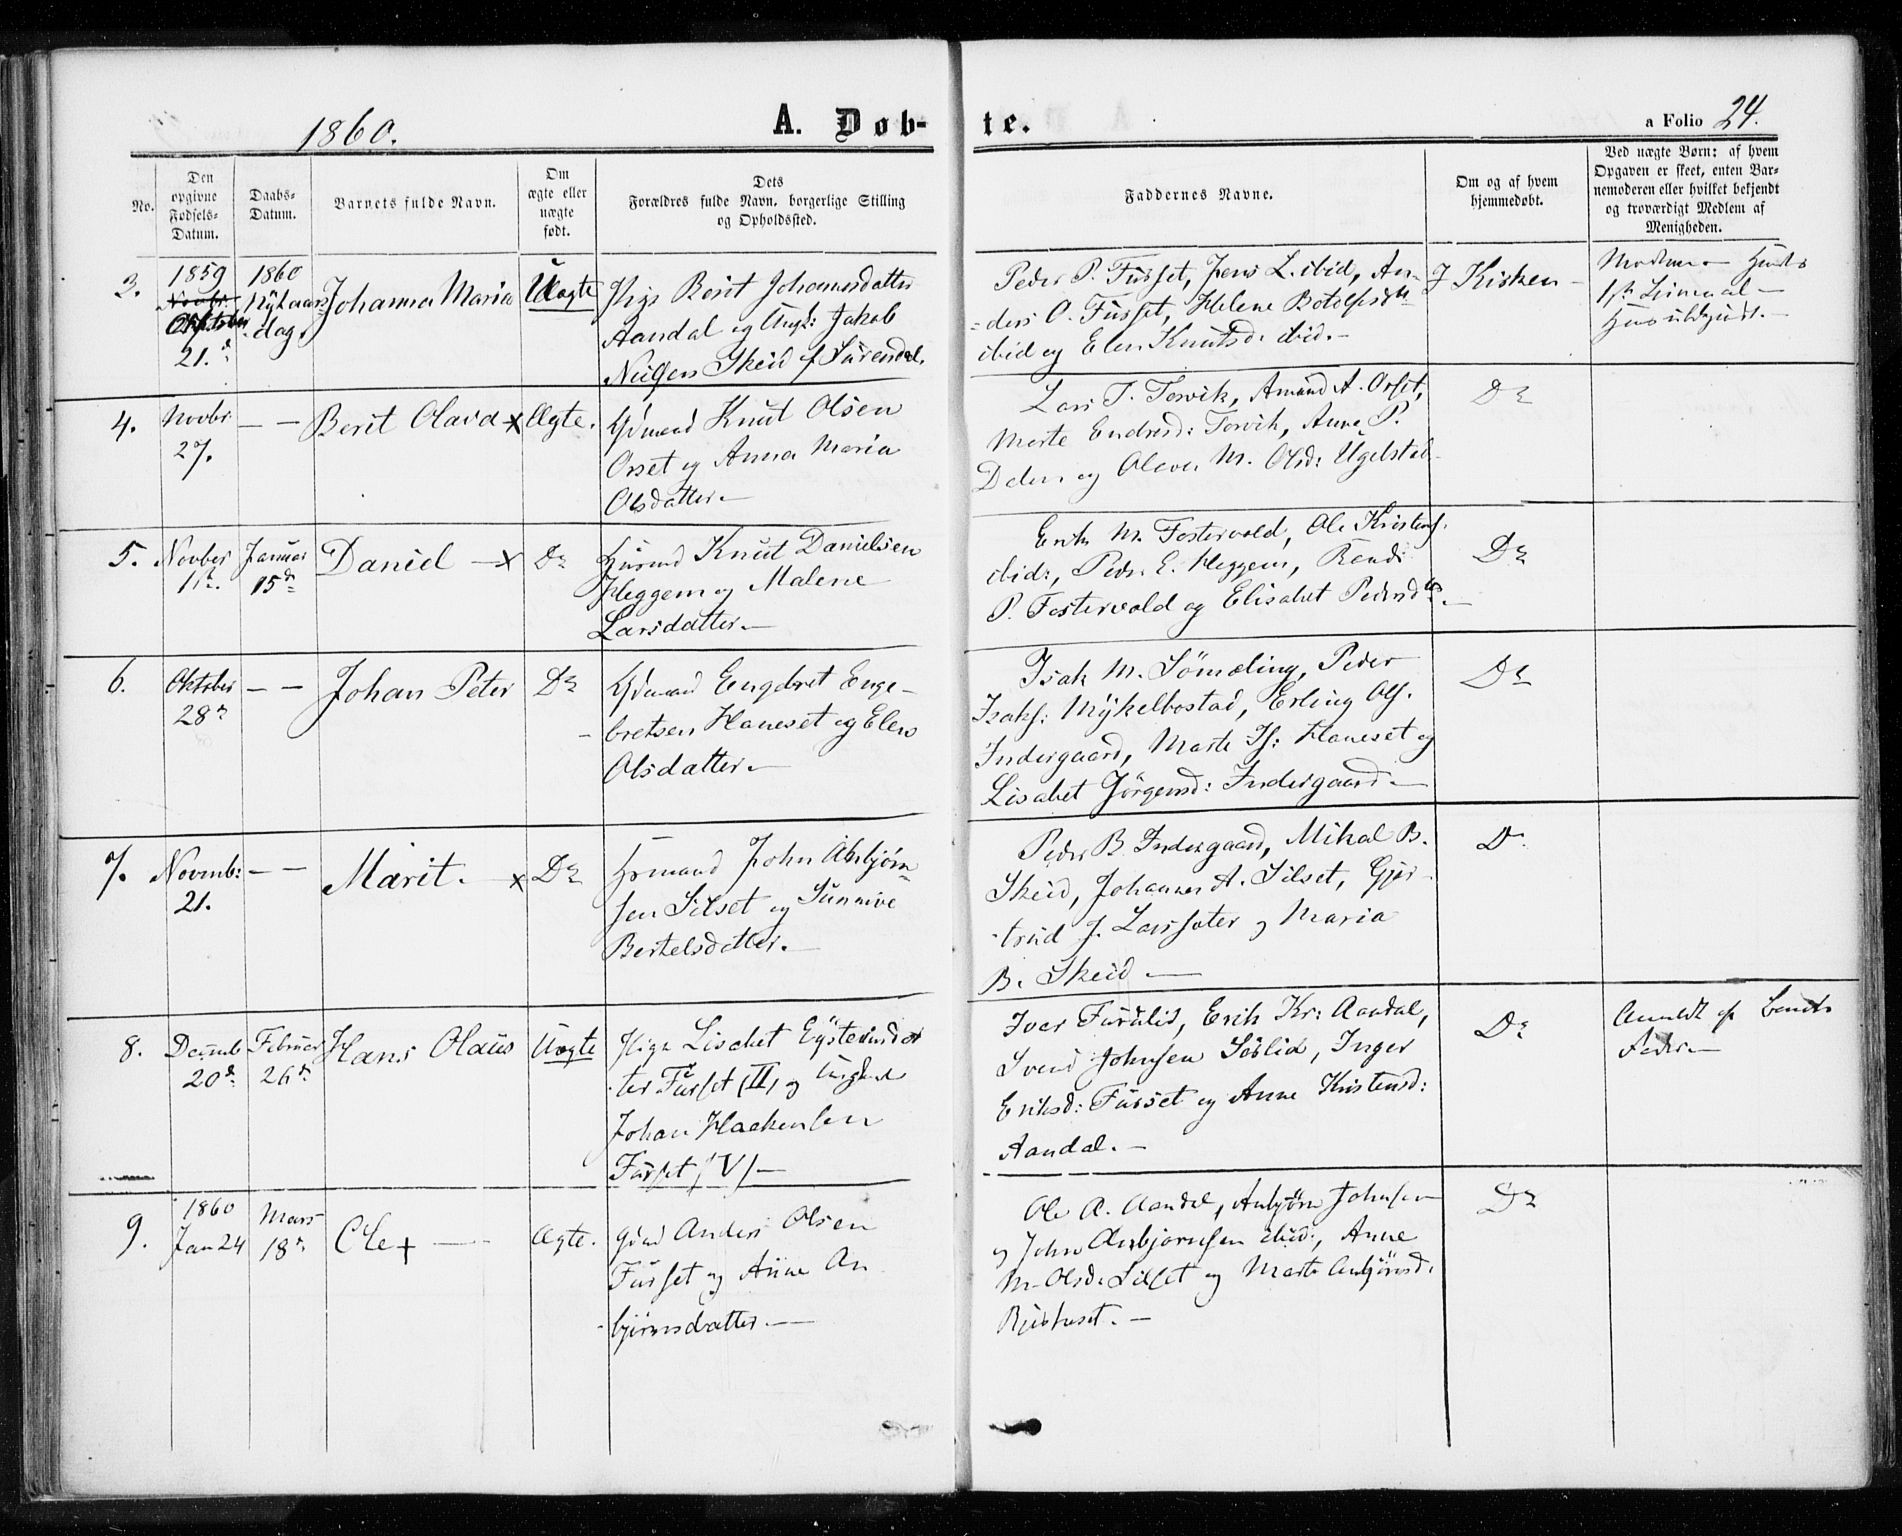 1860.
A. Døb-
te.
a Folio 24.
No.
Den
opgivne
Fødsels-
Datum.
Daabs-
Datum.
Barnets fulde Navn.
Om
ægte eller
uægte
født.
Dets
Forældres fulde Navn, borgerlige Stilling
og Opholdssted.
Faddernes Navne.
Om og af hvem
hjemmedøbt.
Ved uægte Børn: af hvem
Opgaven er skeet, enten Bar-
nemoderen eller hvilket bekjendt
og troværdigt Medlem af
Menigheden.
3.
1859
Novbr.
Oktober
21.d
1860
Nytaars
dag.
Johanna Maria
Uægte
Pige Berit Johannesdatter
Aandal og Ungk: Jakob
Nilsen Skeid f Surendal.
Peder P. Furset, Jens L. ibid, An-
ders O. Furset, Helene Botolfsdtr
ibid og Elen Knutsd. ibid.-
I Kirken -
4.
Novbr
27.
- -
Berit Olava x
Ægte.
Gdmand Knut Olsen
Orset og Anna Maria
Olsdatter.-
Lars T. Torvik, Amund A. Orset,
Marte Endresd: Torvik, Anne P.
og M. Olsd: Ugelstad
Do
5.
Novber
11te.
Januar
15de
Daniel - x
Do
Knut Danielsen
Heggem og Malene
Larsdatter.-
Erik M. Fostervold, Ole Kristens.
ibid:, Peder E. Heggem, Randi
P. Fostervold og Elisabet Pedersdtr.-
Do
6.
Oktober
28de
- -
Johan Peter
Do
Gdmand Engebret Enge-
bretsen Haneset og Elen
Olsdatter.-
Isak M. Sömæling, Peder
Isaks: Mykelbostad, Erling Ols.
Indergaard, Marte Is: Haneset og
Lisabet Jörgensd: Indergaard.-
Do
7.
Novmb:
21.
- -
Marit. - x
Do
John Asbjörn-
sen Silset og Sunnive
Bertelsdatter.-
Peder B. Indergaard, Mikal B.
Skeid, Johannes A. Silset, Gjer-
trud J. Larssæter og Maria
B. Skeid -
Do
8.
Decmb
20de
Februar
26de
Hans Olaus
Uægte
Pige Lisabet Eysteinsdat
ter Furset (II) og Ungkarl
Johan Haakensen
Furset (V)-
Iver Furulid, Erik Kr: Aandal,
Svend Johnsen Söslid, Inger
Eriksd: Furset og Anne Kristensd:
Aandal.-
Do
Anmeldt af Barnets
Fader.-
9.
1860
Jan 24
Mars
18de
Ole +
Ægte.
Anders Olsen
Furset og Anne An
björnsdatter.-
Ole A. Aandal, Anbjörn Johnsen
og John Anbjörnsen ibid:, Anne
M. Olsd: Silset og Marte Anbjörnsd.
Do